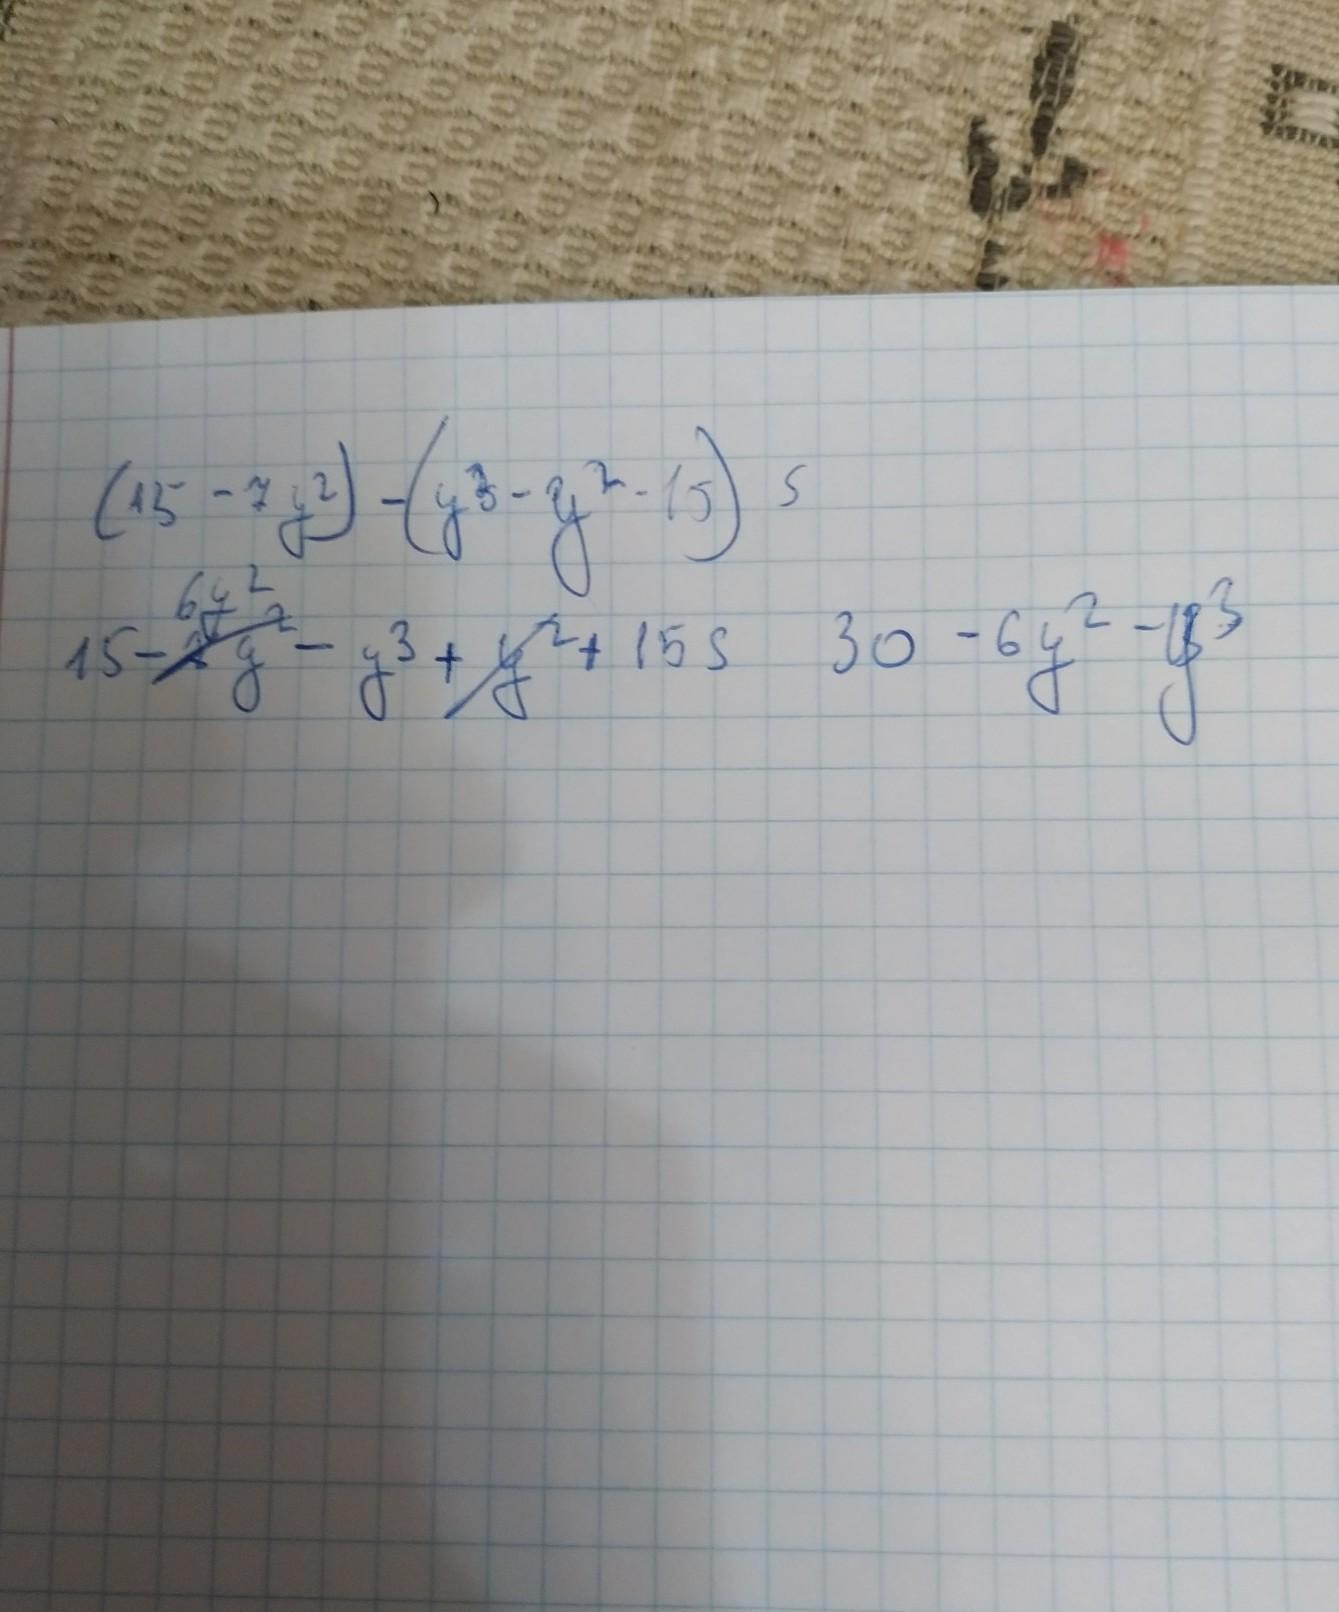 (15 - 7y²) - (y³ - y² - 15) s
6y²
15 - 7y² - y³ + y² + 15 s 30 - 6y² - y³